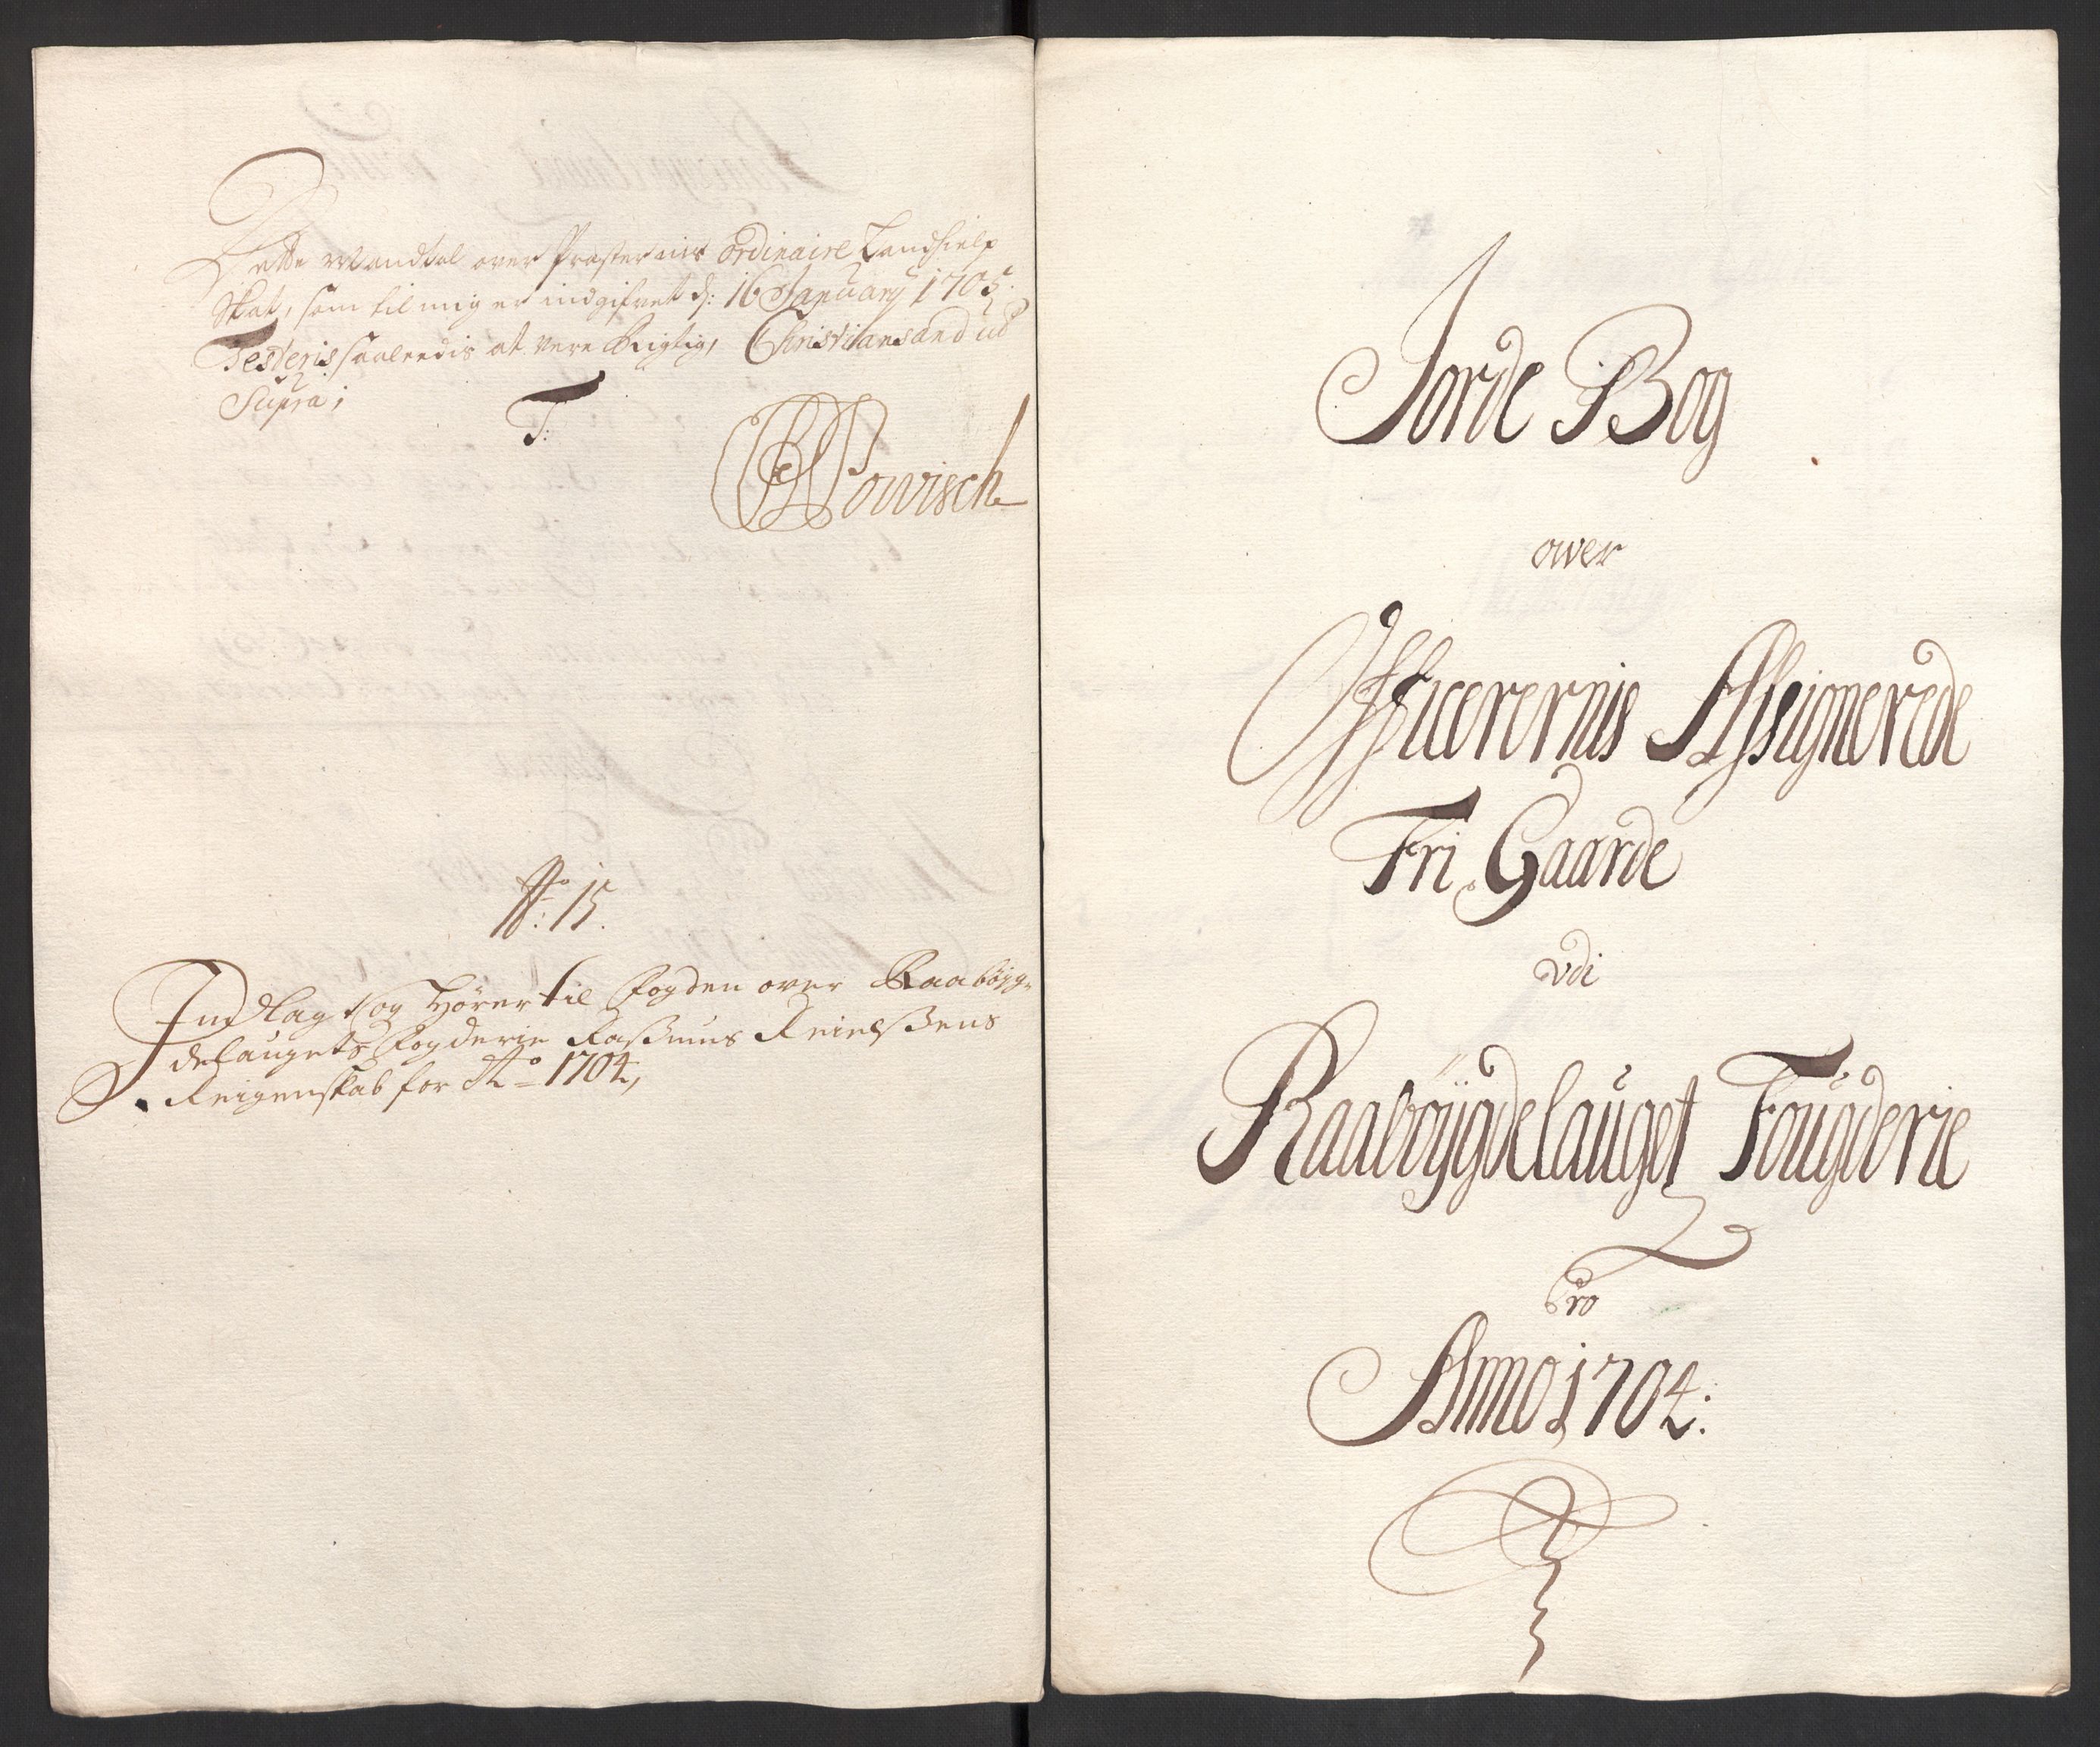 Dette Mandtal over Præsternis Ordinaire Landhielp
Skat, som til mig er indgifvet d: 16 January 1705.
Testeris saaleedis at vere Rigtig, Christiansand ut
Supra;
T:
Powisch
No: 15.
Indlag og Hører til Fogden over Raabøyg-
delaugets Fogderie Rasmus
Reigenskab for Ao 1704,
Jorde Bog
over
Officerernis Assignerede
Fri Gaarde
vdi
Raabøÿgdelauget Fougderie
Pro
Anno 1704: